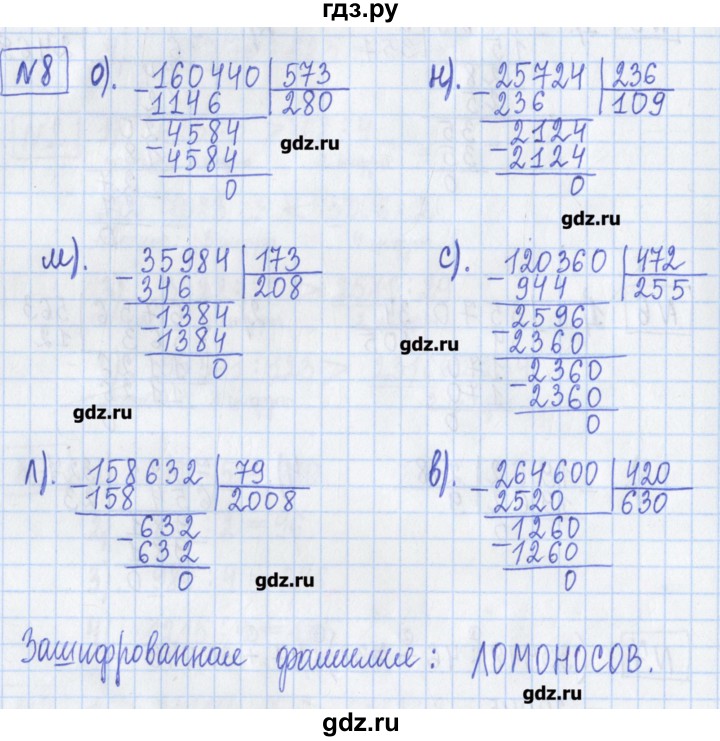 гдз.ру
№8 о). 160440 | 573
- 1146 280
4584
- 4584
0
gdz.ru
н). 25724 | 236
- 236 109
2124
- 2124
0
gdz.ru
м). 35984 | 173
- 346 208
1384
- 1384
0
gdz.ru
с). 120360 | 472
- 944 255
2596
- 2360
2360
- 2360
0
gdz.ru
л). 158632 | 79
- 158 2008
632
- 632
0
gdz.ru
в). 264600 | 420
- 2520 630
1260
- 1260
0
Зашифрованная фамилия: ЛОМОНОСОВ.
gdz.ru
gdz.ru